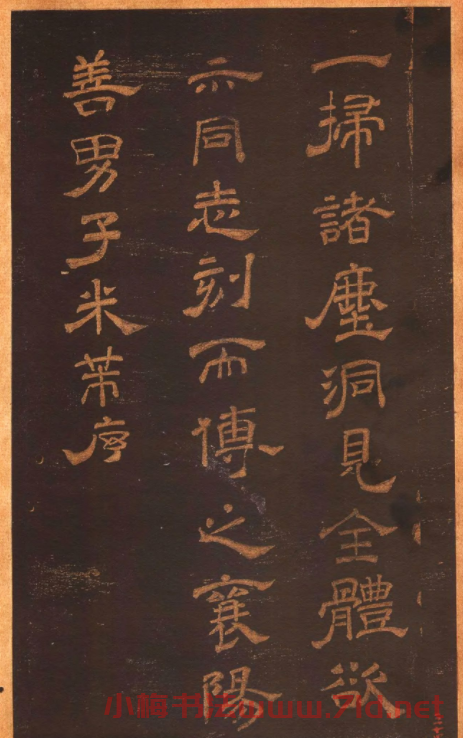 一掃諸塵洞見全體欲
示同志刻而傳之襄陽
善男子米芾序
小梅书法www.71d.net